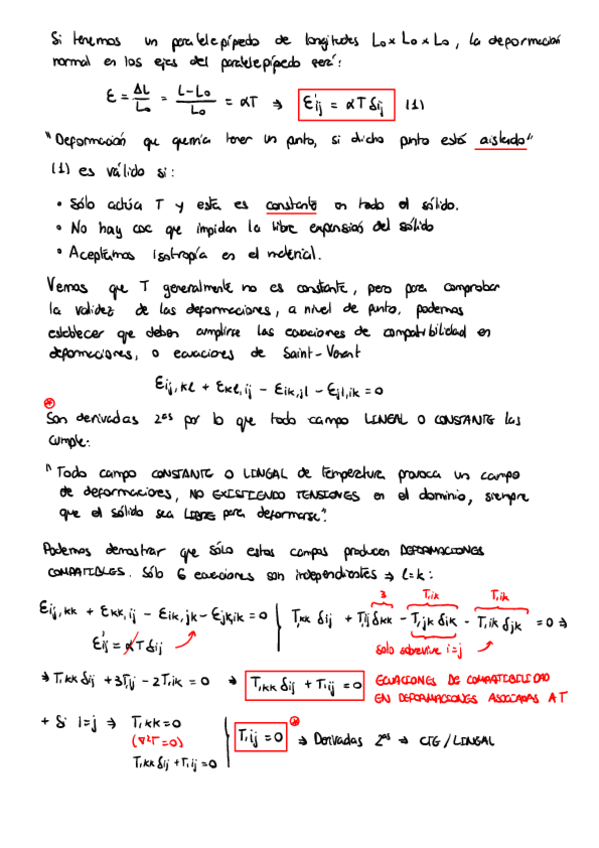 Si tenemos un paralelepípedo de longitudes L₀ x L₀ x L₀, la deformación
normal en los ejes del paralelepípedo será:
ε = ΔL/L₀ = (L-L₀)/L₀ = αT ⇒ ε'ij = αTδij (1)
"Deformación que querría tener un punto, si dicho punto está aislado"
(1) es válido si:
• Sólo actúa T y esta es constante en todo el sólido.
• No hay CDC que impidan la libre expansión del sólido
• Aceptamos Isotropía en el material.
Vemos que T generalmente no es constante, pero para comprobar
la validez de las deformaciones, a nivel de punto, podemos
establecer que deben cumplirse las ecuaciones de compatibilidad en
deformaciones, o ecuaciones de Saint-Venant
εij,kl + εkl,ij - εik,jl - εjl,ik = 0
*
Son derivadas 2ᵃˢ por lo que todo campo LINEAL O CONSTANTE las
cumple:
"Todo campo CONSTANTE O LINEAL de temperatura provoca un campo
de deformaciones, NO EXISTIENDO TENSIONES en el dominio, siempre
que el sólido sea LIBRE para deformarse".
Podemos demostrar que sólo estos campos producen DEFORMACIONES
COMPATIBLES. Sólo 6 ecuaciones son independientes ⇒ l=k:
3 T,ik T,ik
εij,kk + εkk,ij - εik,jk - εjk,ik = 0 | T,kk δij + T,ij δkk - T,jk δik - T,ik δjk = 0 ⇒
ε'ij = αTδij
solo sobrevive i=j
⇒ T,kk δij + 3T,ij - 2T,ik = 0 ⇒ T,kk δij + T,ij = 0 ECUACIONES DE COMPATIBILIDAD
EN DEFORMACIONES ASOCIADAS A T
+ Si i=j ⇒ T,kk = 0
(∇²T = 0)
T,kk δij + T,ij = 0
T,ij = 0 * ⇒ Derivadas 2ᵃˢ ⇒ CTE/LINEAL